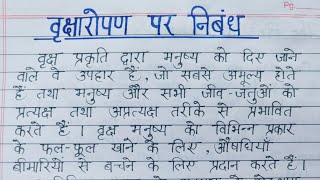 Pg
वृक्षारोपण पर निबंध
वृक्ष प्रकृति द्वारा मनुष्य को दिए जाने
वाले वे उपहार हैं, जो सबसे अमूल्य होते
हैं तथा मनुष्य और सभी जीव-जंतुओं को
प्रत्यक्ष तथा अप्रत्यक्ष तरीके से प्रभावित
करते हैं। वृक्ष मनुष्य को विभिन्न प्रकार
के फल-फूल खाने के लिए, औषधियाँ
बीमारियों से बचने के लिए प्रदान करते हैं।